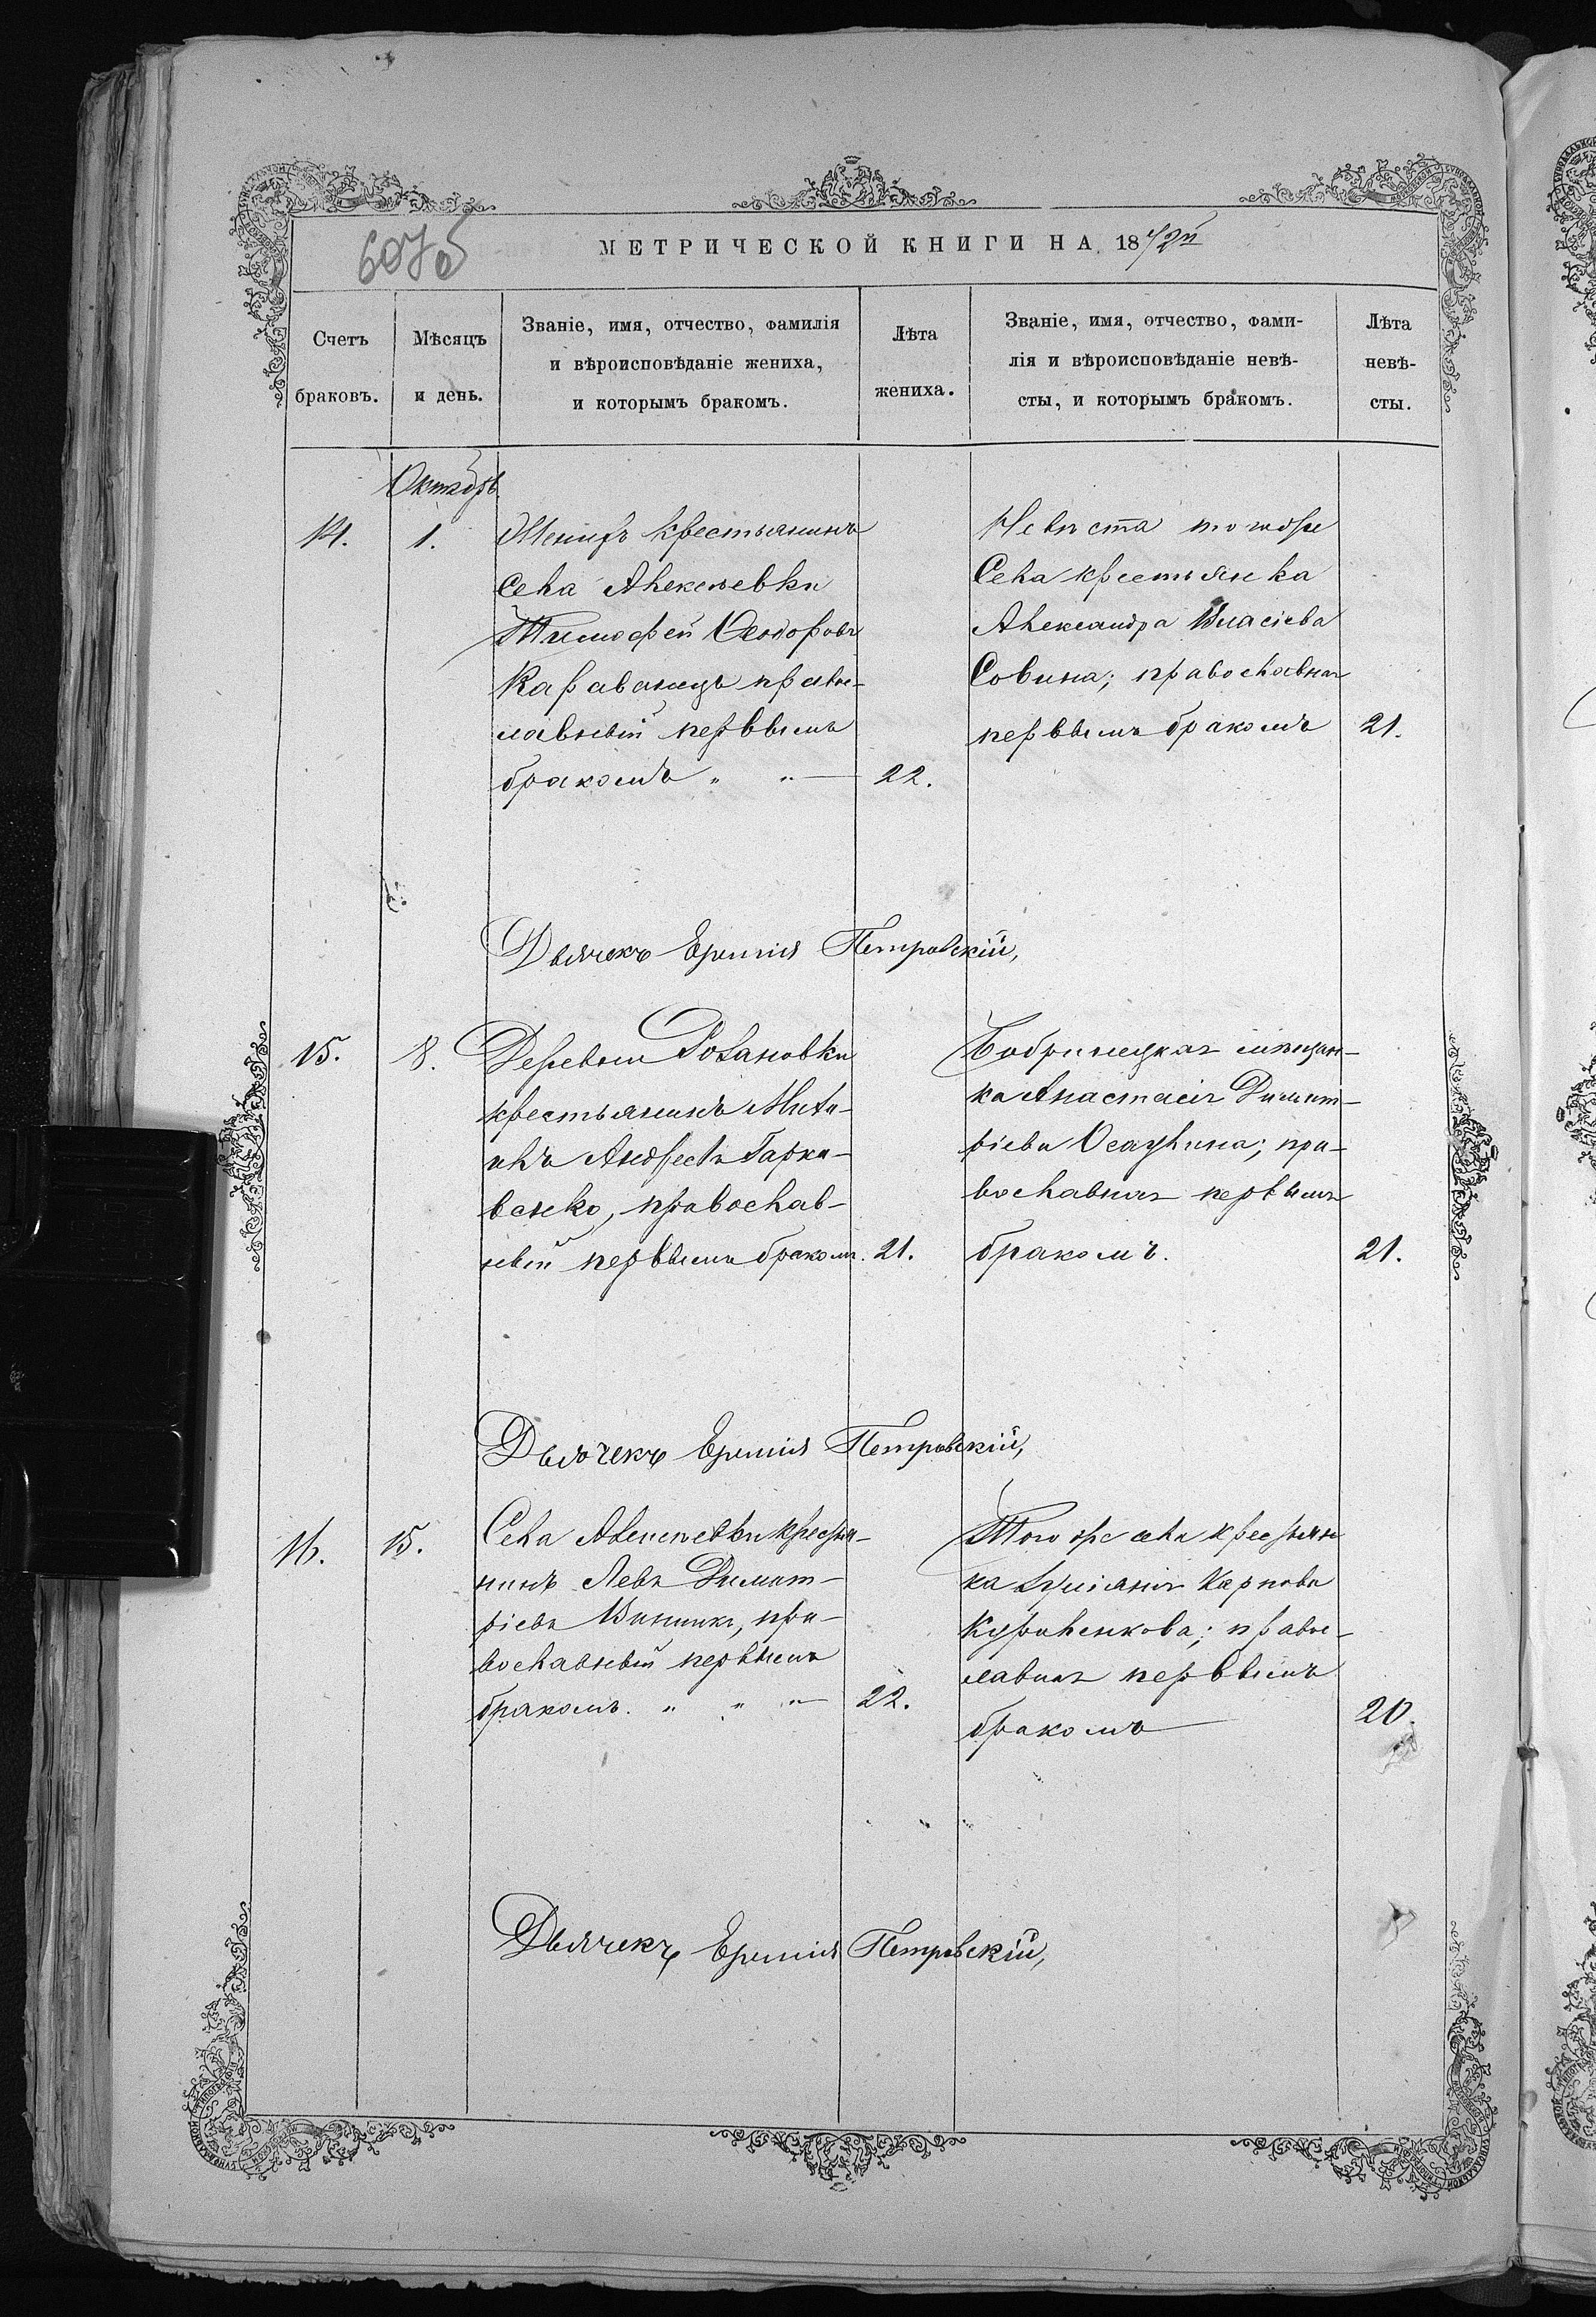 607об
МЕТРИЧЕСКОЙ КНИГИ НА 1872й
Счетъ браковъ.
Мѣсяцъ и день.
Званіе, имя, отчество, фамилія
и вѣроисповѣданіе жениха,
и которымъ бракомъ.
Лѣта жениха.
Званіе, имя, отчество, фами-
лія и вѣроисповѣданіе невѣ-
сты, и которымъ бракомъ.
Лѣта невѣ-
сты.
Октябрь
14.
1.
Женихъ крестьянинъ
села Алексѣевки
Тимофей Ѳеодоровъ
Караванецъ правос-
лавный первымъ
бракомъ " "—
22.
Невѣста тогоже
Села крестьянка
Александра Власіева
Совина; православная
первымъ бракомъ
21.
Дьячекъ Еремія Петровскій,
15.
8.
Деревни
крестьянинъ Миха-
илъ Андреевъ Гарка-
венко, православ-
ный первымъ бракомъ.
21.
Бобринецкая мѣщан-
ка Анастасія Димит-
ріева Осаулина; пра-
вославная первымъ
бракомъ.
21.
Дьячекъ Еремія Петровскій,
16.
15.
Села Алексѣевки крестья-
нинъ Левъ Димит-
ріевъ Винникъ, пра-
вославный первымъ
бракомъ. " " "—
22.
Того же села крестьян
ка Карпова
Куриленкова; правос-
лавная первымъ
бракомъ —
20.
Дьячекъ Еремія Петровскій,